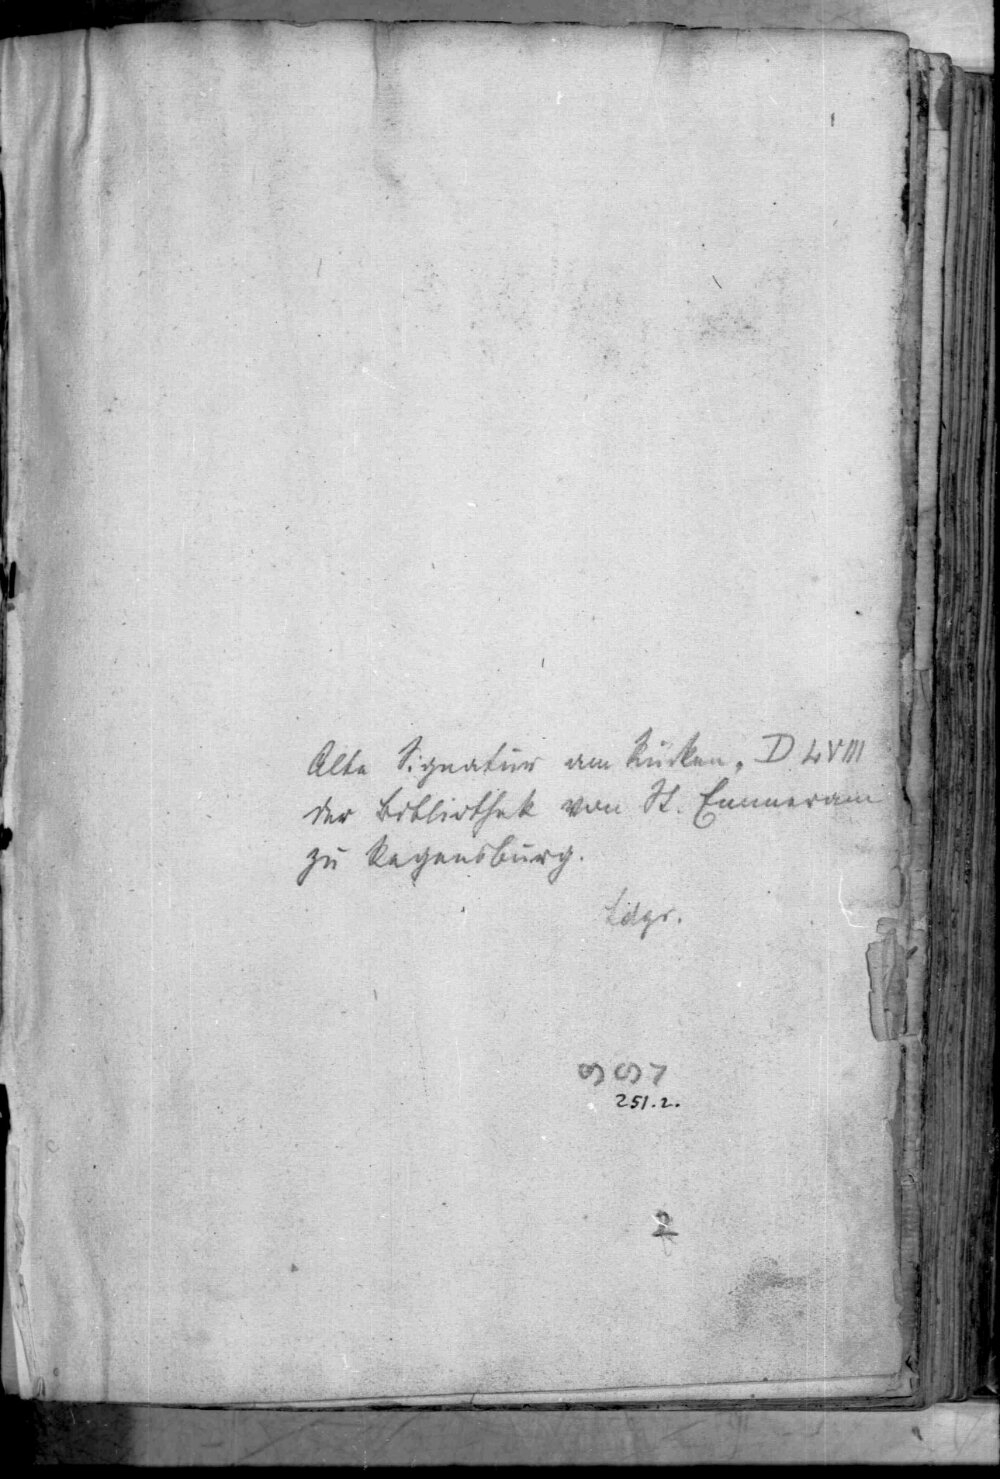 Alte Signatur am Rücken, D LVIII
der Bibliothek von St. Emmeram
zu Regensburg.
Ldgr.
251.2.